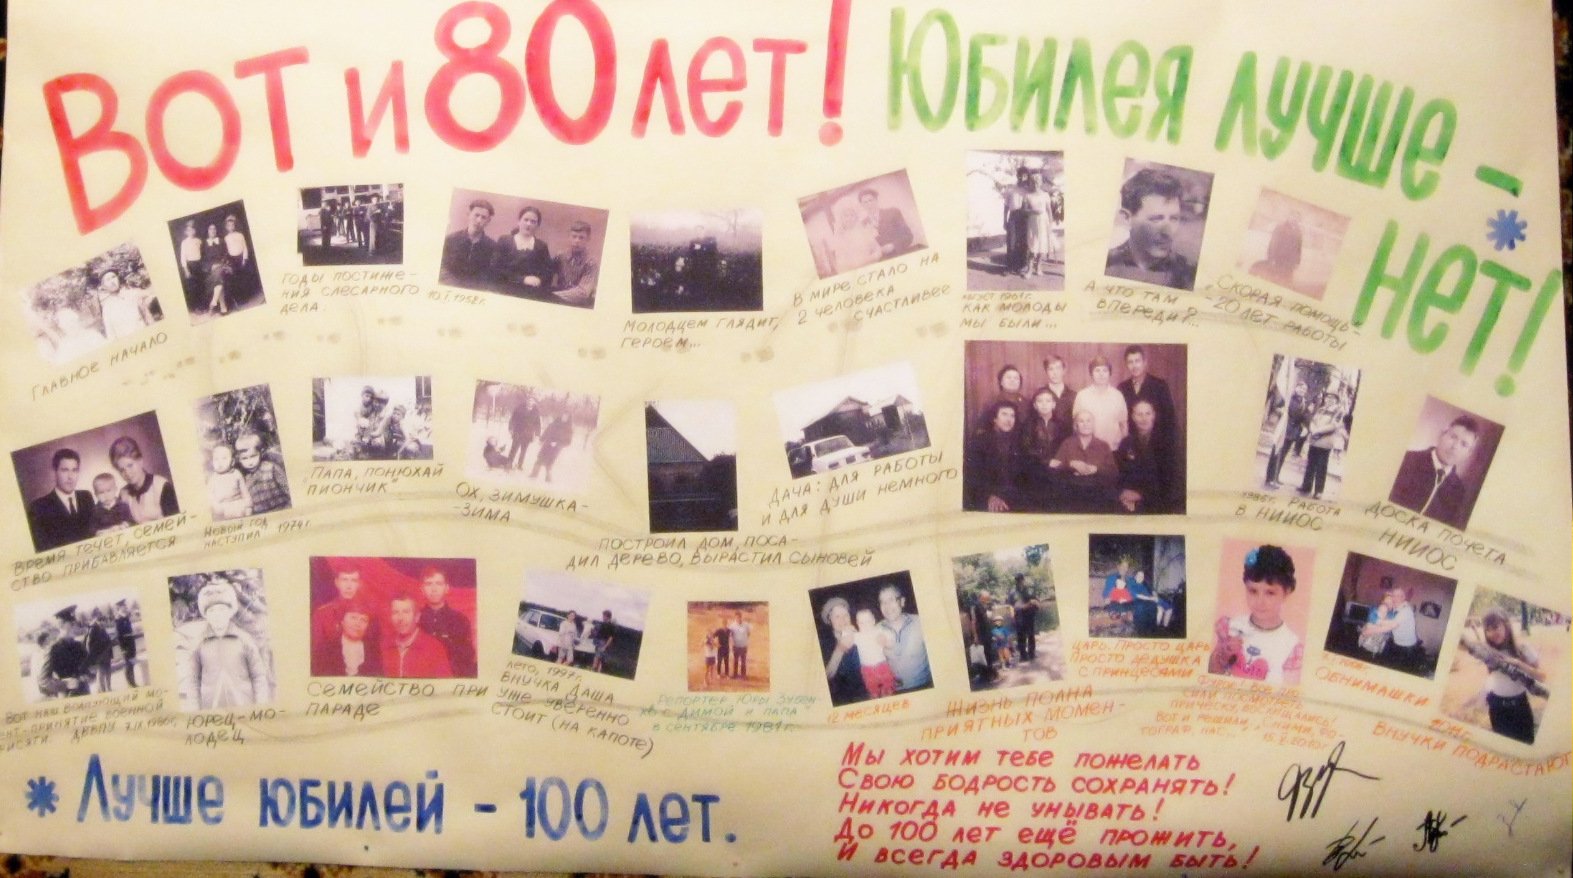 Вот и 80 лет! Юбилея лучше -
* нет!
Главное начало
Годы постиже-
ния слесарного
дела
1958г.
Молодцем глядит,
героем...
В мире стало на
2 человека
счастливее
1961г.
Как молоды
мы были...
А что там
впереди?...
"Скорая помощь"-
-20 лет работы
Время течёт, семей-
ство прибавляется
Новый год
наступил 1974г
"Папа, понюхай
пиончик"
Ох, зимушка-
-зима
Построил дом, поса-
дил дерево, вырастил сыновей
Дача: для работы
и для души немного
1986г. Работа
в НИИОС
Доска почёта
НИИОС
Вот наш волнующий мо-
мент-принятие военной
присяги. 1986г.
Юрец-мо-
лодец
Семейство при
параде
Лето, 1997г.
Внучка Даша
уже уверенно
стоит (на капоте)
Репортёр Юры Зубен
ко с Димой и папа
в сентябре 1981г.
12 месяцев
Жизнь полна
приятных момен-
тов
Царь. Просто царь
Просто дедушка
с принцессами
прическу, восхищались!
Вот и решили,
Обнимашки
Внучки подрастают
* Лучше юбилей - 100 лет.
Мы хотим тебе пожелать
Свою бодрость сохранять!
Никогда не унывать!
До 100 лет ещё прожить,
И всегда здоровым быть!